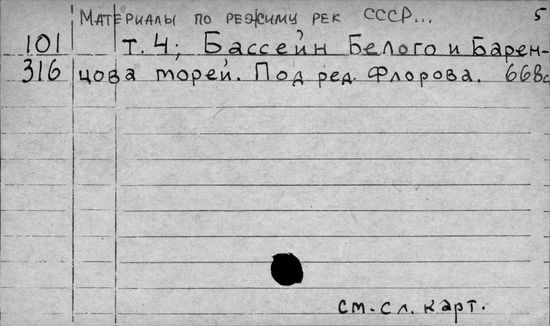 Материалы по режиму рек СССР... 5
101 т. 4; Бассейн Белого и Барен-
316 цова морей. Под ред. Флорова. 668с
см. сл. карт.